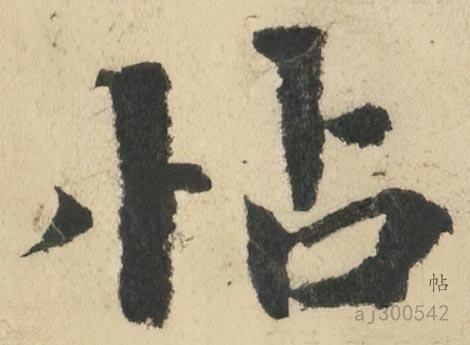 怗
帖
aj300542